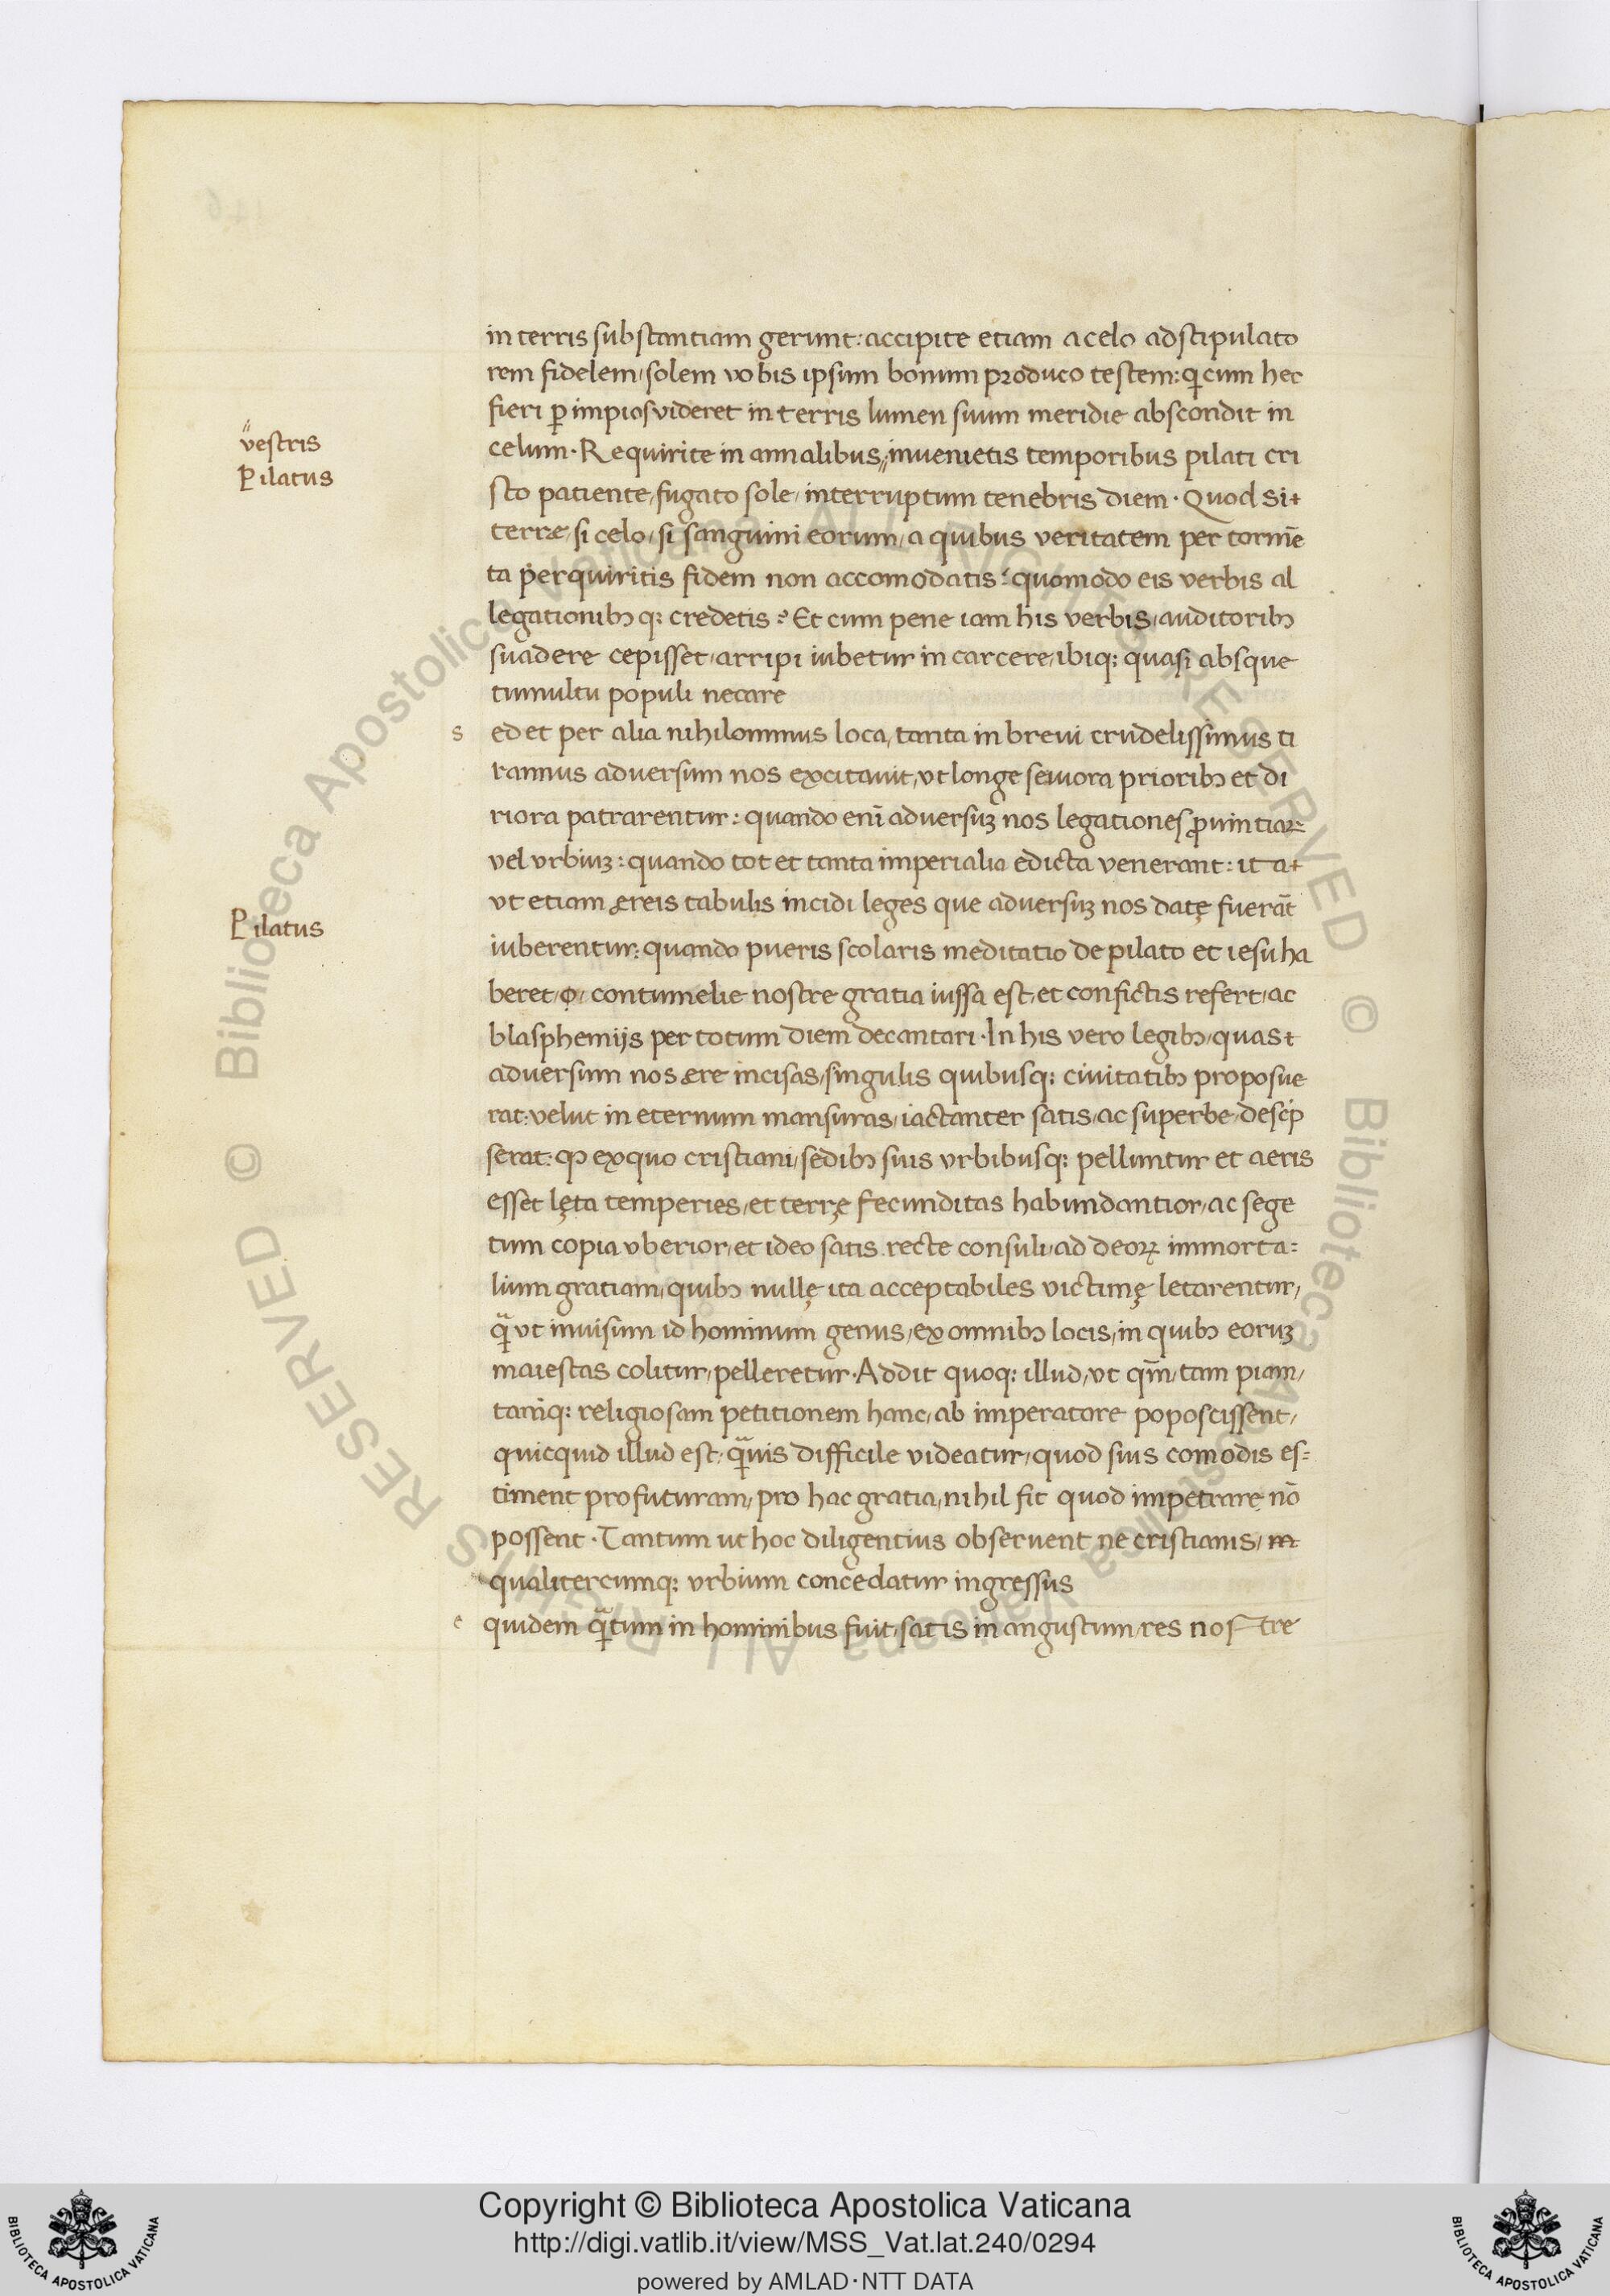 in terris substantiam gerunt: accipite etiam a celo adstipulato
rem fidelem, solem vobis ipsum bonum produco testem: qͥ cum hec
fieri ꝑ impios videret in terris lumen suum meridie abscondit in
vestris
celum. Requirite in annalibus,, invenietis temporibus pilati cri
Pilatus
sto patiente, fugato sole, interruptum tenebris diem. Quod si
terrę, si celo, si sanguini eorum, a quibus veritatem per tormē
ta perquiritis fidem non accomodatis? quomodo eis verbis al
legationibꝫ qꝫ credetis? Et cum pene iam his verbis, auditoribꝫ
suadere cepisset, arripi iubetur in carcere, ibiqꝫ quasi absque
tumultu populi necare
s ed et per alia nihilominus loca, tanta in brevi crudelissimus ti
rannus adversum nos excitavit, vt longe seviora prioribꝫ et di
riora patrarentur: quando enī adversuꝫ nos legationes ꝓvintiaꝝ
vel vrbiuꝫ: quando tot et tanta imperialia edicta venerant: ita
vt etiam ęreis tabulis incidi leges que adversuꝫ nos datę fuerāt
Pilatus
iuberentur: quando pueris scolaris meditatio de pilato et iesu ha
beret, contumelie nostre gratia iussa est, et confictis refert, ac
blasphemijs per totum diem decantari. In his vero legibꝫ, quas
adversum nos ęre incisas, singulis quibusqꝫ civitatibꝫ proposue
rat. velut in eternum mansuras, iactanter satis, ac superbe, descͥp
serat: ꝙ exquo cristiani, sedibꝫ suis vrbibusqꝫ pelluntur et aeris
esset lęta temperies, et terrę fecunditas habundantior, ac sege
tum copia vberior, et ideo satis recte consuli, ad deoꝝ immorta=
lium gratiam, quibꝫ nullę ita acceptabiles victimę letarentur,
qͣ vt invisum id hominum genus, ex omnibꝫ locis, in quibꝫ eoruꝫ
maiestas colitur, pelleretur. Addit quoqꝫ illud, vt qm̄, tam piam,
tamqꝫ religiosam petitionem hanc, ab imperatore poposcissent,
quicquid illud est, qͣvis difficile videatur, quod suis comodis es=
timent profuturam, pro hac gratia, nihil fit quod impetrare nō
possent. Tantum ut hoc diligentius observent ne cristianis, in
qualitercumqꝫ vrbium concedatur ingressus
e quidem qͣtum in hominibus fuit, satis in angustum, res nostre
Copyright © Biblioteca Apostolica Vaticana
http://digi.vatlib.it/view/MSS_Vat.lat.240/0294
powered by AMLAD·NTT DATA
BIBLIOTECA APOSTOLICA VATICANA
BIBLIOTECA APOSTOLICA VATICANA
© Biblioteca Apostolica Vaticana ALL RIGHTS RESERVED © Biblioteca Apostolica Vaticana ALL RIGHTS RESERVED